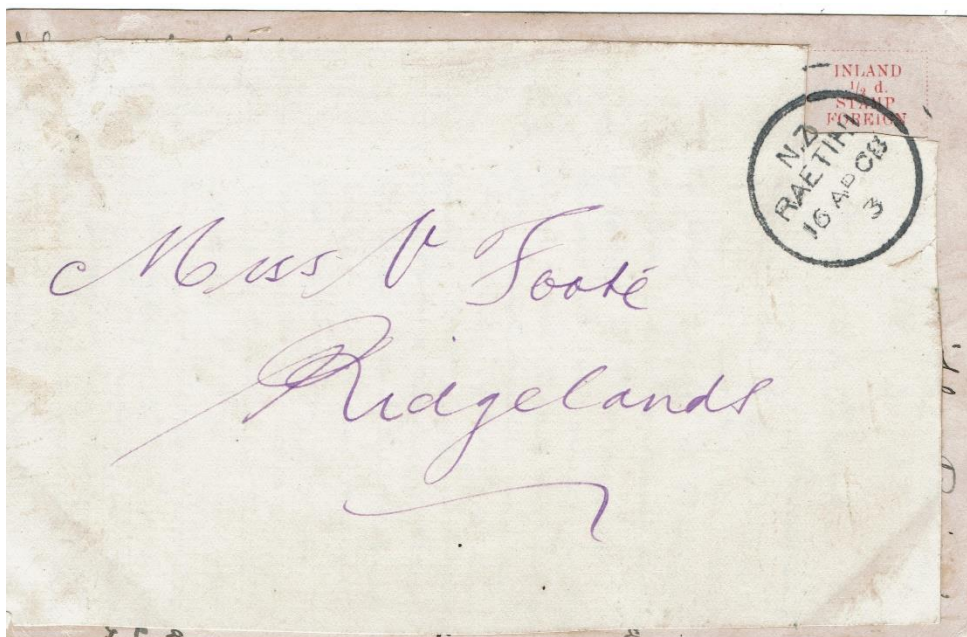 INLAND
½ d.
STAMP
FOREIGN
N.Z
RAETIHI
16 AP 08
3
Miss V Foote
Ridgelands